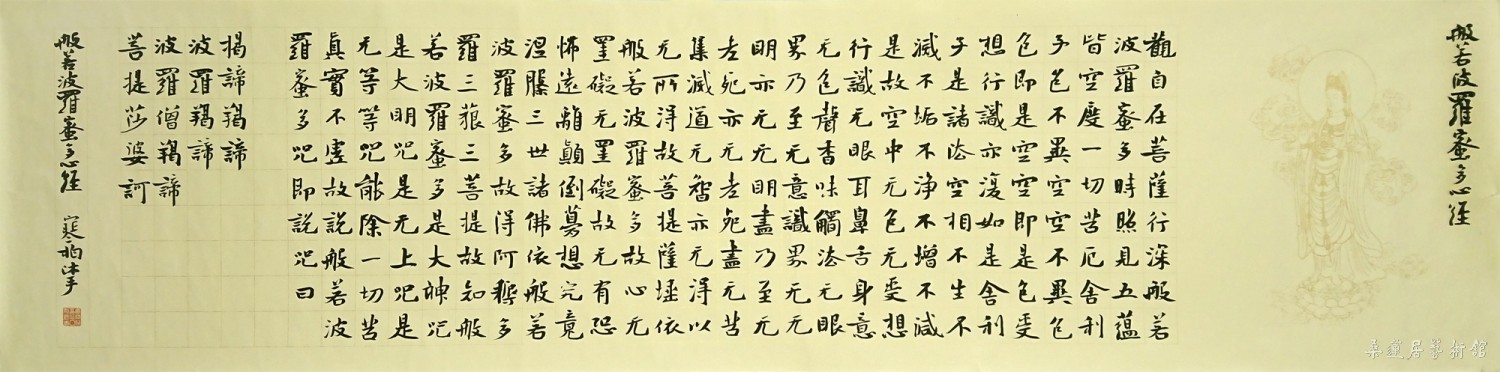 般若波羅蜜多心經
觀自在菩薩行深般若
波羅蜜多時照見五蘊
皆空度一切苦厄舍利
子色不異空空不異色
色即是空空即是色受
想行識亦復如是舍利
子是諸法空相不生不
滅不垢不淨不增不減
是故空中无色无受想
行識无眼耳鼻舌身意
无色聲香味觸法无眼
界乃至无意識界无无
明亦无无明盡乃至无
老死亦无老死盡无苦
集滅道无智亦无得以
无所得故菩提薩埵依
般若波羅蜜多故心无
罣礙无罣礙故无有恐
怖遠離顛倒夢想究竟
涅槃三世諸佛依般若
波羅蜜多故得阿耨多
羅三藐三菩提故知般
若波羅蜜多是大神咒
是大明咒是无上咒是
无等等咒能除一切苦
真實不虛故說般若波
羅蜜多咒即說咒曰
揭諦羯諦
波羅羯諦
波羅僧羯諦
菩提莎婆訶
般若波羅蜜多心經 寒柏沐手
桑蓮居藝術館